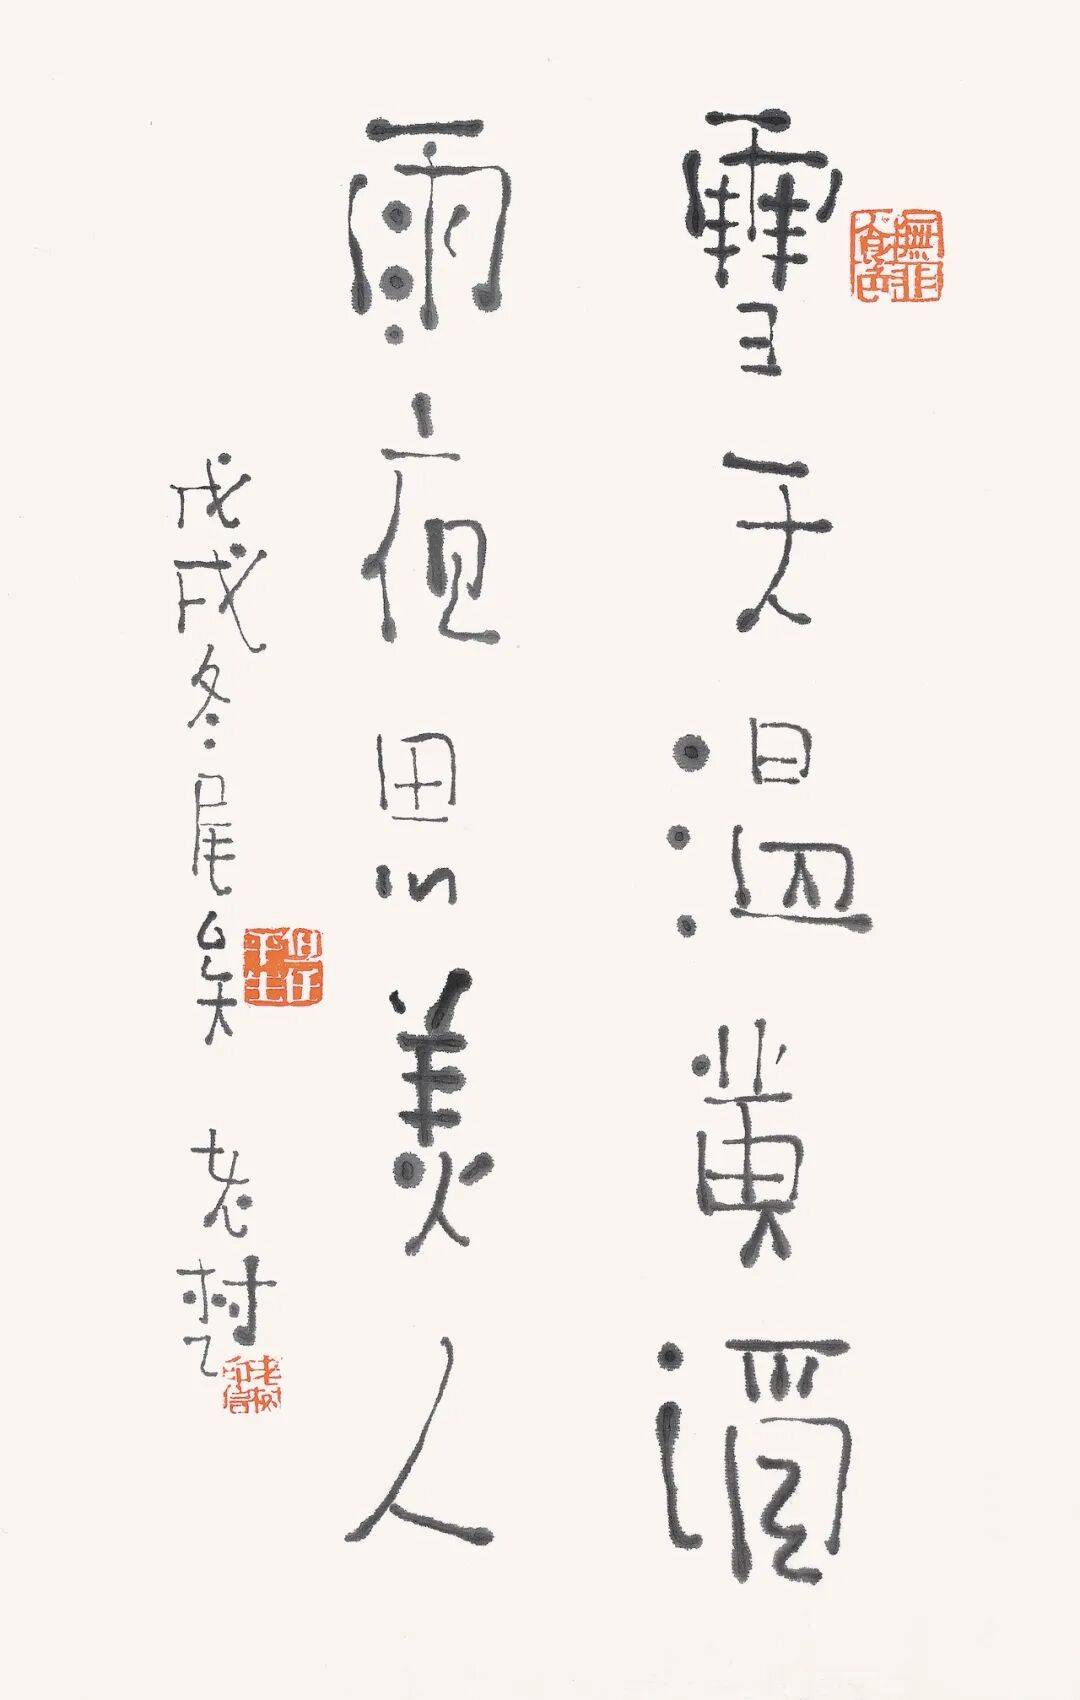 雪天温黄酒
雨夜思美人
戊戌冬尾矣 老树
無非食色
但任平生
老树印信